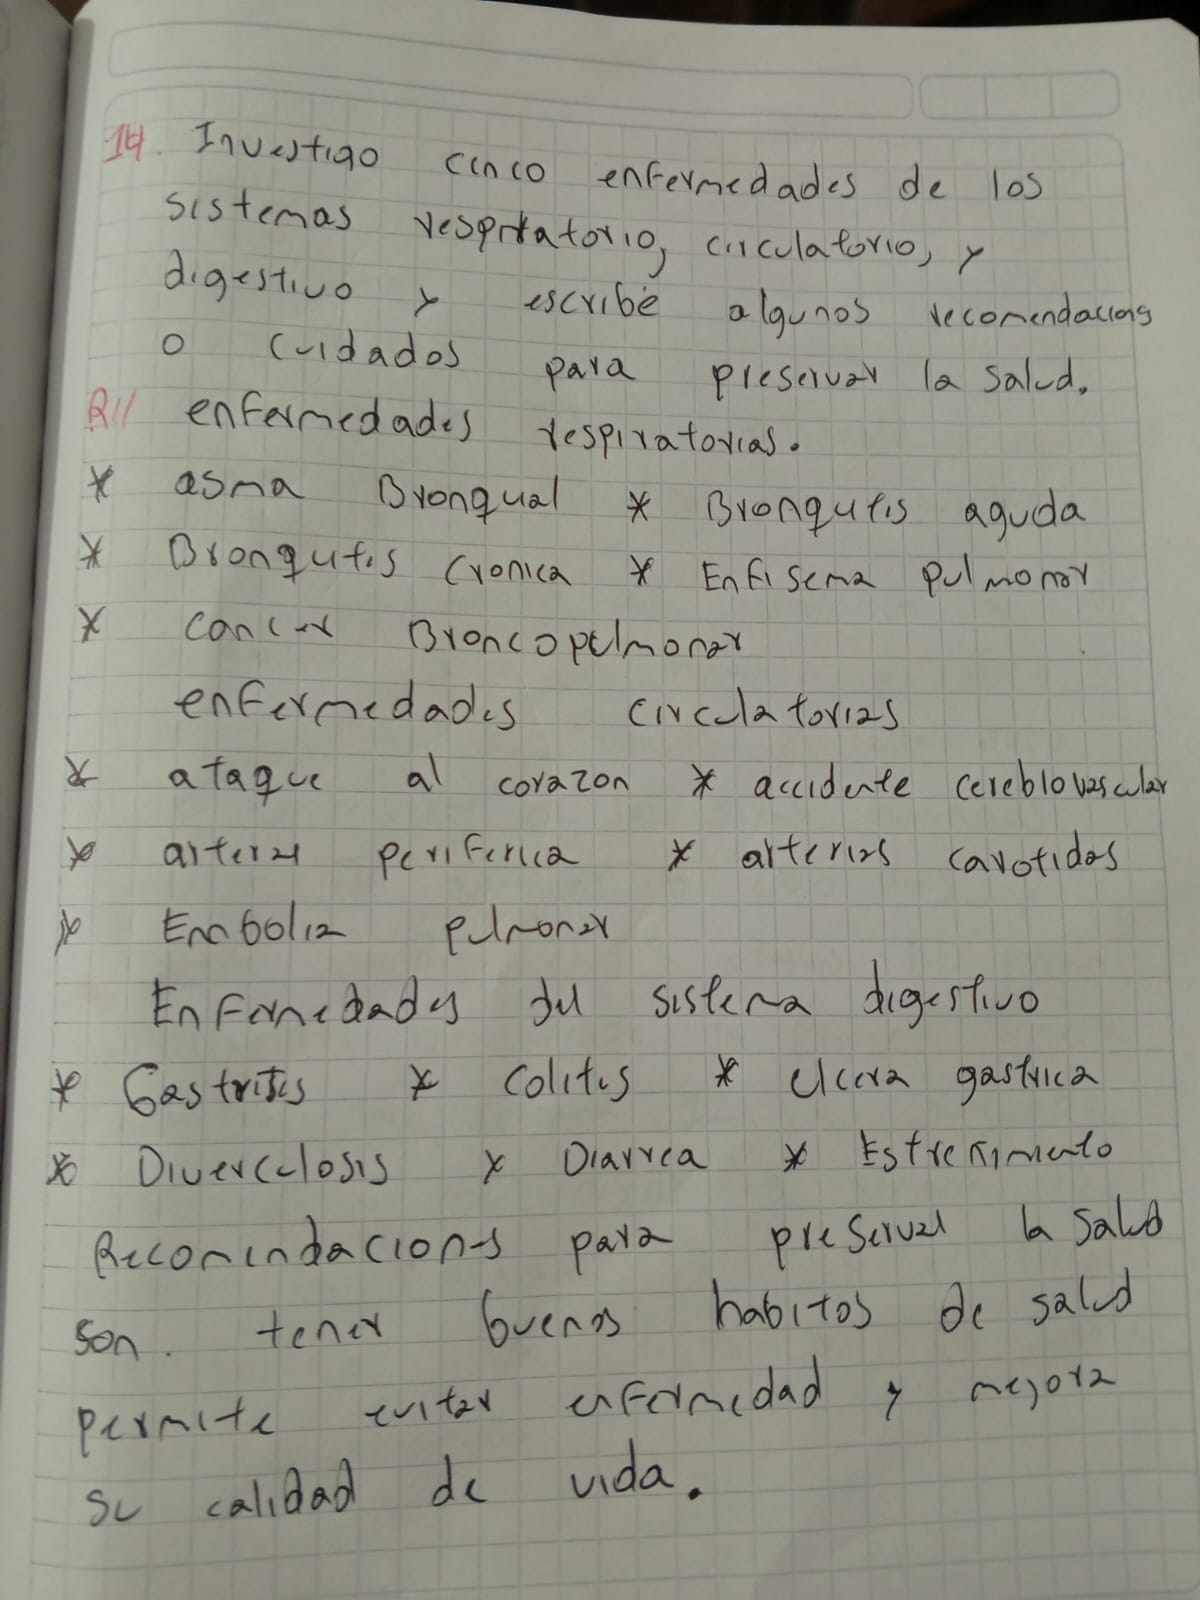 14. Investigo cinco enfermedades de los
sistemas respiratorio, circulatorio, y
digestivo y escribe algunos recomendacions
o cuidados para preservar la salud.
R// enfermedades respiratorias.
* asma Bronqual * Bronqutis aguda
* Bronqutis Cronica * Enfisema pulmonar
* cancer Broncopulmonar
enfermedades circulatorias
* ataque al corazon * accidente cereblovascular
* arterias periferica * arterias carotidas
* Embolia pulmonar
Enfermedades del sistema digestivo
* Gastritis * Colitis * ulcera gastrica
* Diverculosis * Diarrea * Estreñimiento
Recomendaciones para preservar la salud
son. tener buenos habitos de salud
permite evitar enfermedad y mejora
su calidad de vida.